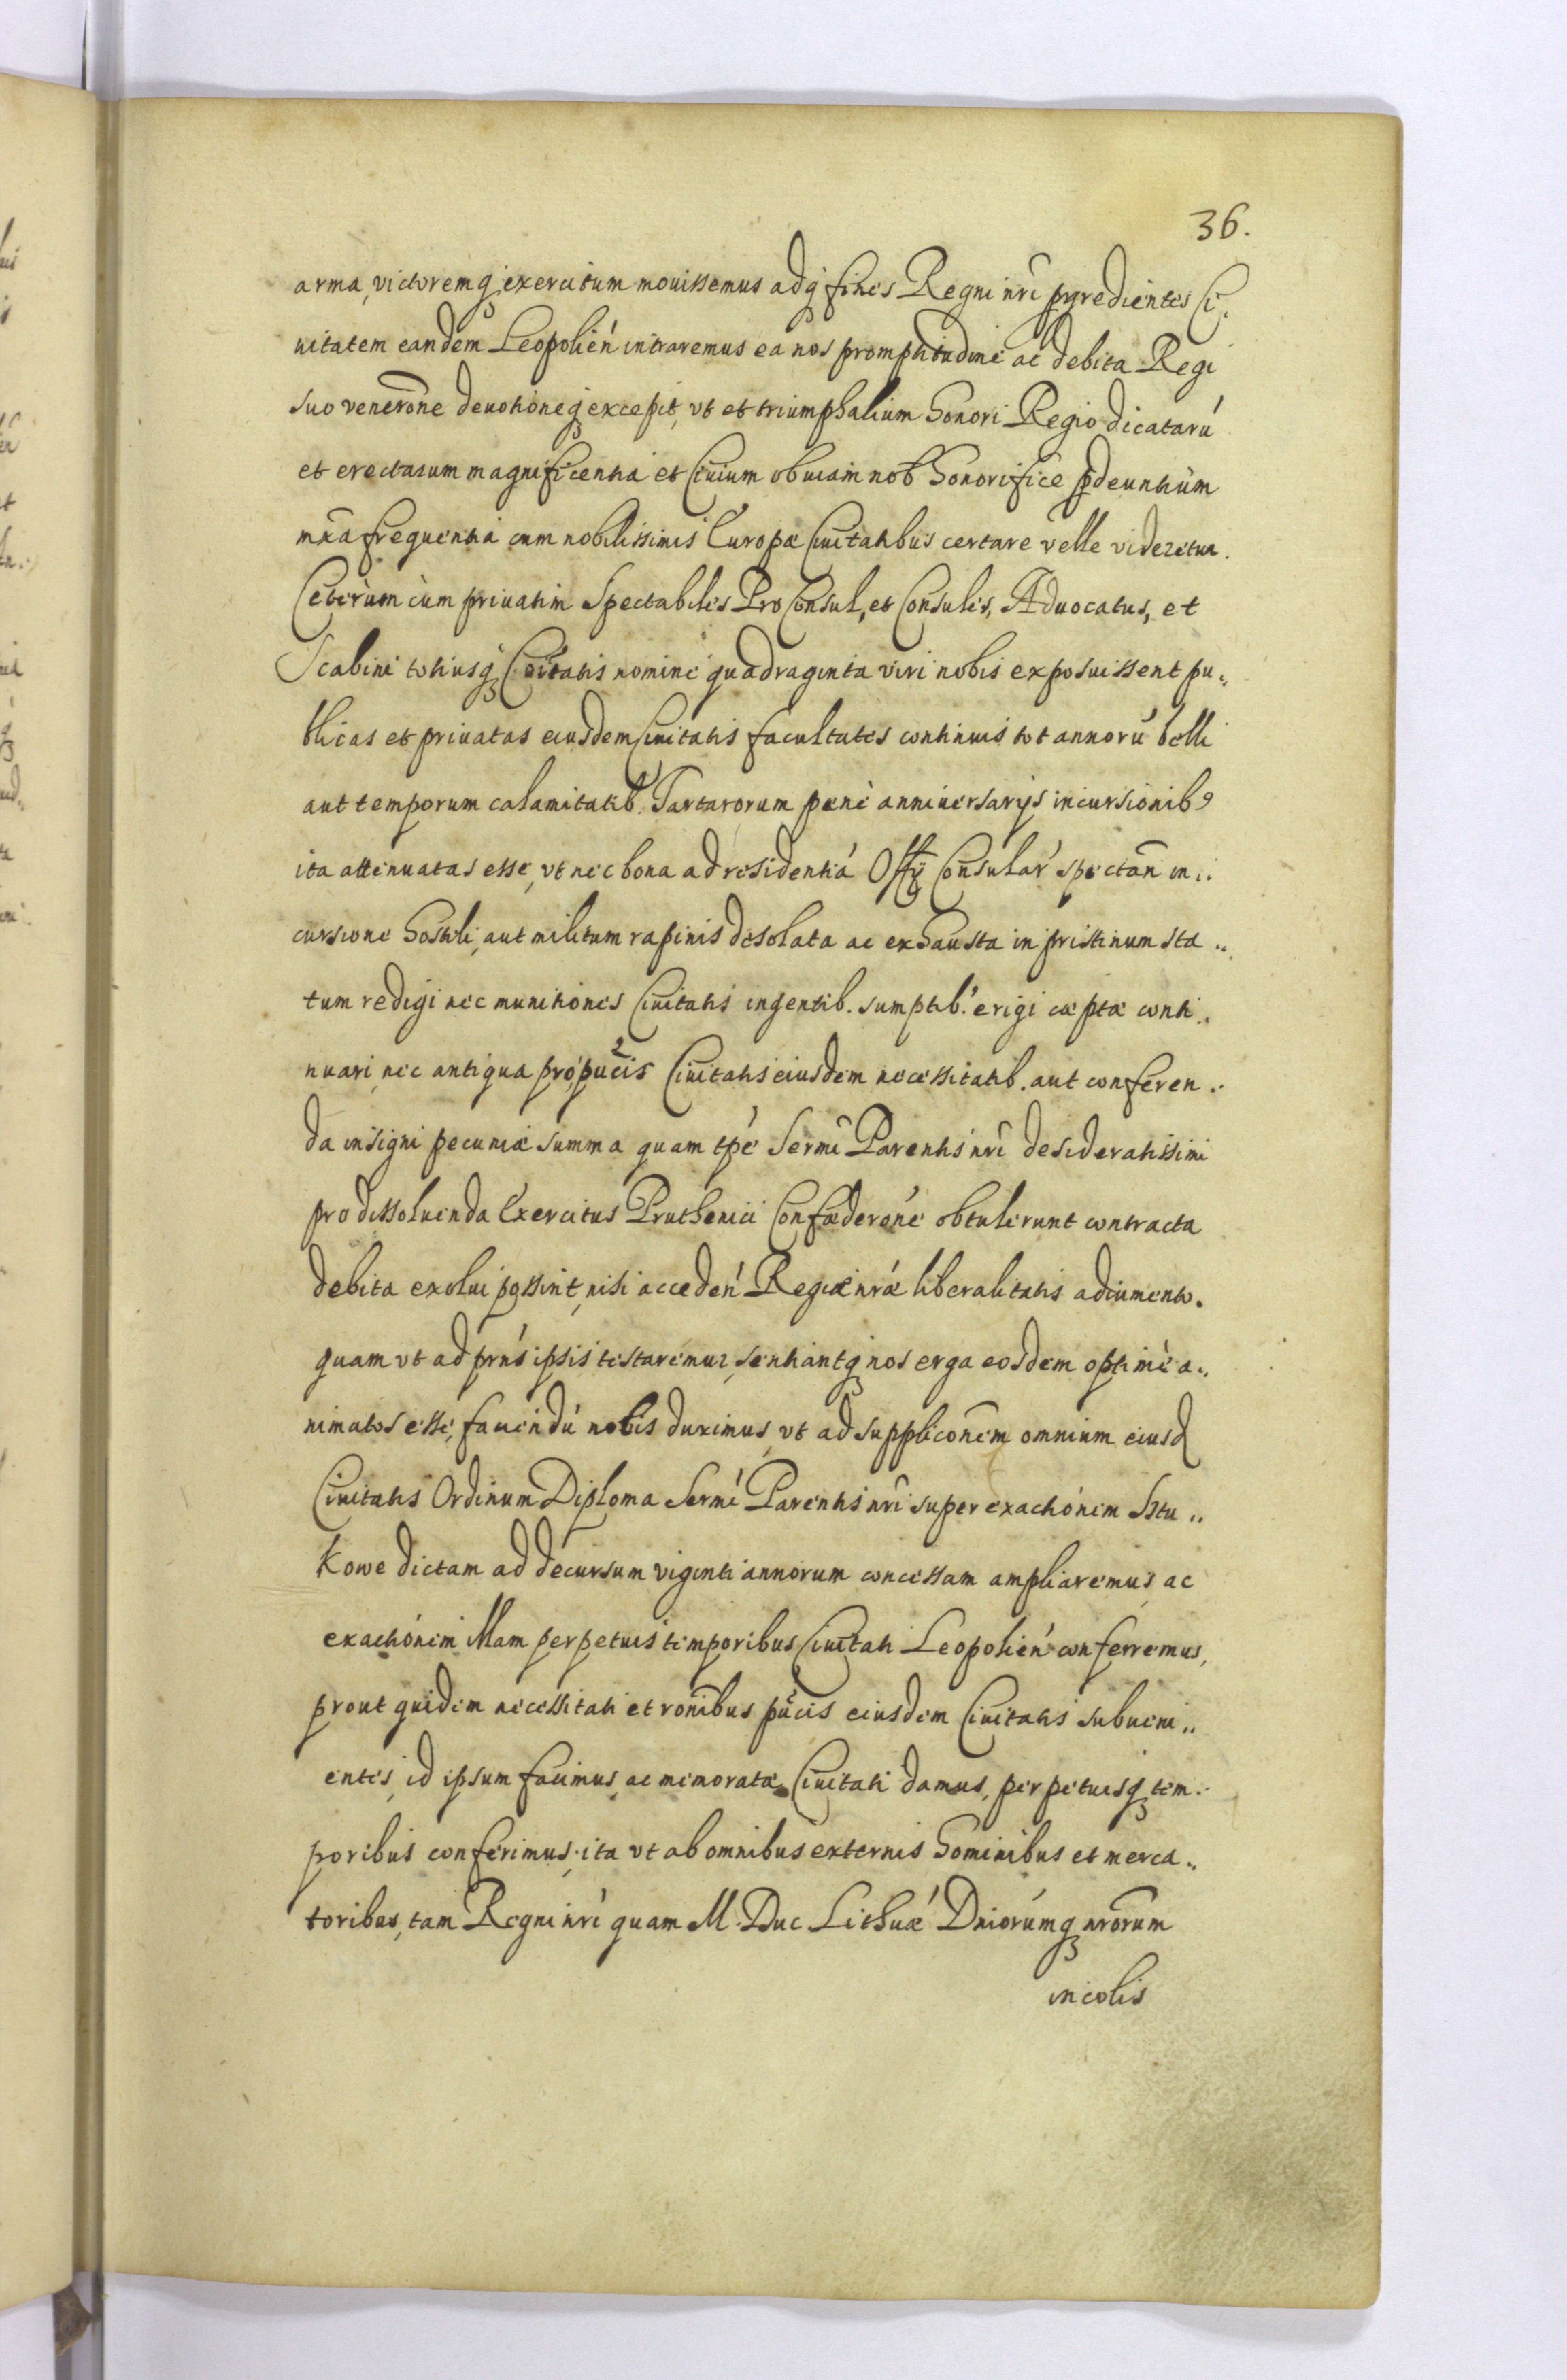 36.
arma, victoremq₃ exercitum mouissemus adq₃ fines Regni nrī pgredientes Ci„
uitatem eandem Leopolień intraremus ea nos promptitudine ac debita Regi
suo venerōne deuotioneq₃ excepit, vt et triumphalium honori Regio dicatarú
et erectarum magnificentia et Ciuium obuiam nob honorifice pdeuntium
mxa frequentia cum nobilissimis Europæ Ciuitatibus certare velle videretur.
Ceterùm cùm priuatim Spectabiles Pro Consul, et Consules, Aduocatus, et
Scabini totiusq₃ Cōitatis nomine quadraginta viri nobis exposuissent pu„
blicas et priuatas eiusdem Ciuitatis facultates continuis tot annorú belli
aut temporum calamitatib. Tartarorum pæne anniuersarijs incursionib9
ita attenuatas esse, vt nec bona ad residentiá Offy Consular spectan̄ in„
cursione hostili, aut militum rapinis desolata ac exhausta in pristinum sta„
tum redigi nec munitiones Ciuitatis ingentib. sumptib. erigi cæptæ conti„
nuari, nec antiqua pro pucis Ciuitatis eiusdem necessitatib. aut conferen„
da insigni pecuniæ summa quam tpe Sermi Parentis nrī desideratissimi
pro dissoluenda Exercitus Pruthenici Confæderóne obtulerunt contracta
debita exolui possint, nisi acceden̄ Regiæ nræ liberalitatis adiumento.
quam vt ad prns ipsis testaremur, sentiantq₃ nos erga eosdem optimè a„
nimatos esse, fauendú nobis duximus, vt ad suppliconem omnium eiusd
Ciuitatis Ordinum Diploma Sermi Parentis nrī super exactiónem Sztu„
kowe dictam ad decursum viginti annorum concessam ampliaremus, ac
exactiónem illam perpetuis temporibus Ciuitati Leopolień conferremus,
prout quidem necessitati et ronibus pucis eiusdem Ciuitatis subueni„
entes, id ipsum facimus, ac memoratæ Ciuitati damus, perpetuisq₃ tem„
poribus conferimus, ita vt ab omnibus externis hominibus et merca„
toribus, tam Regni nrī quam M. Duc Lithuæ Dniorumq₃ nrorum
incolis